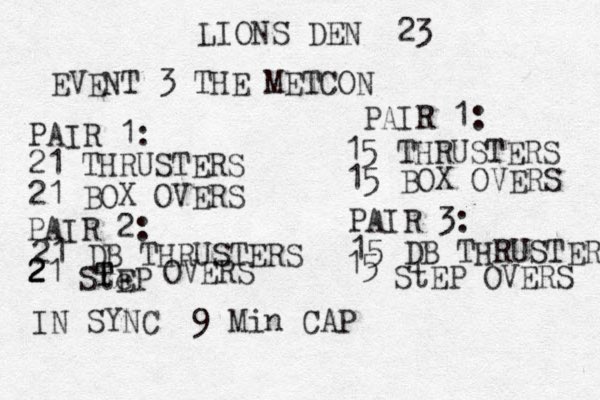 LIONS DEN 23
EVENT 3 THE METCON
PAIR 1:
21 THRUSTERS
21 BOX OVERS
PAIR 2:
21 DB THRUSTERS
21 StEP OVERS
PAIR 1:
15 THRUSTERS
15 BOX OVERS
PAIR 3:
15 DB THRUSTER
15 StEP OVERS
IN SYNC 9 Min CAP